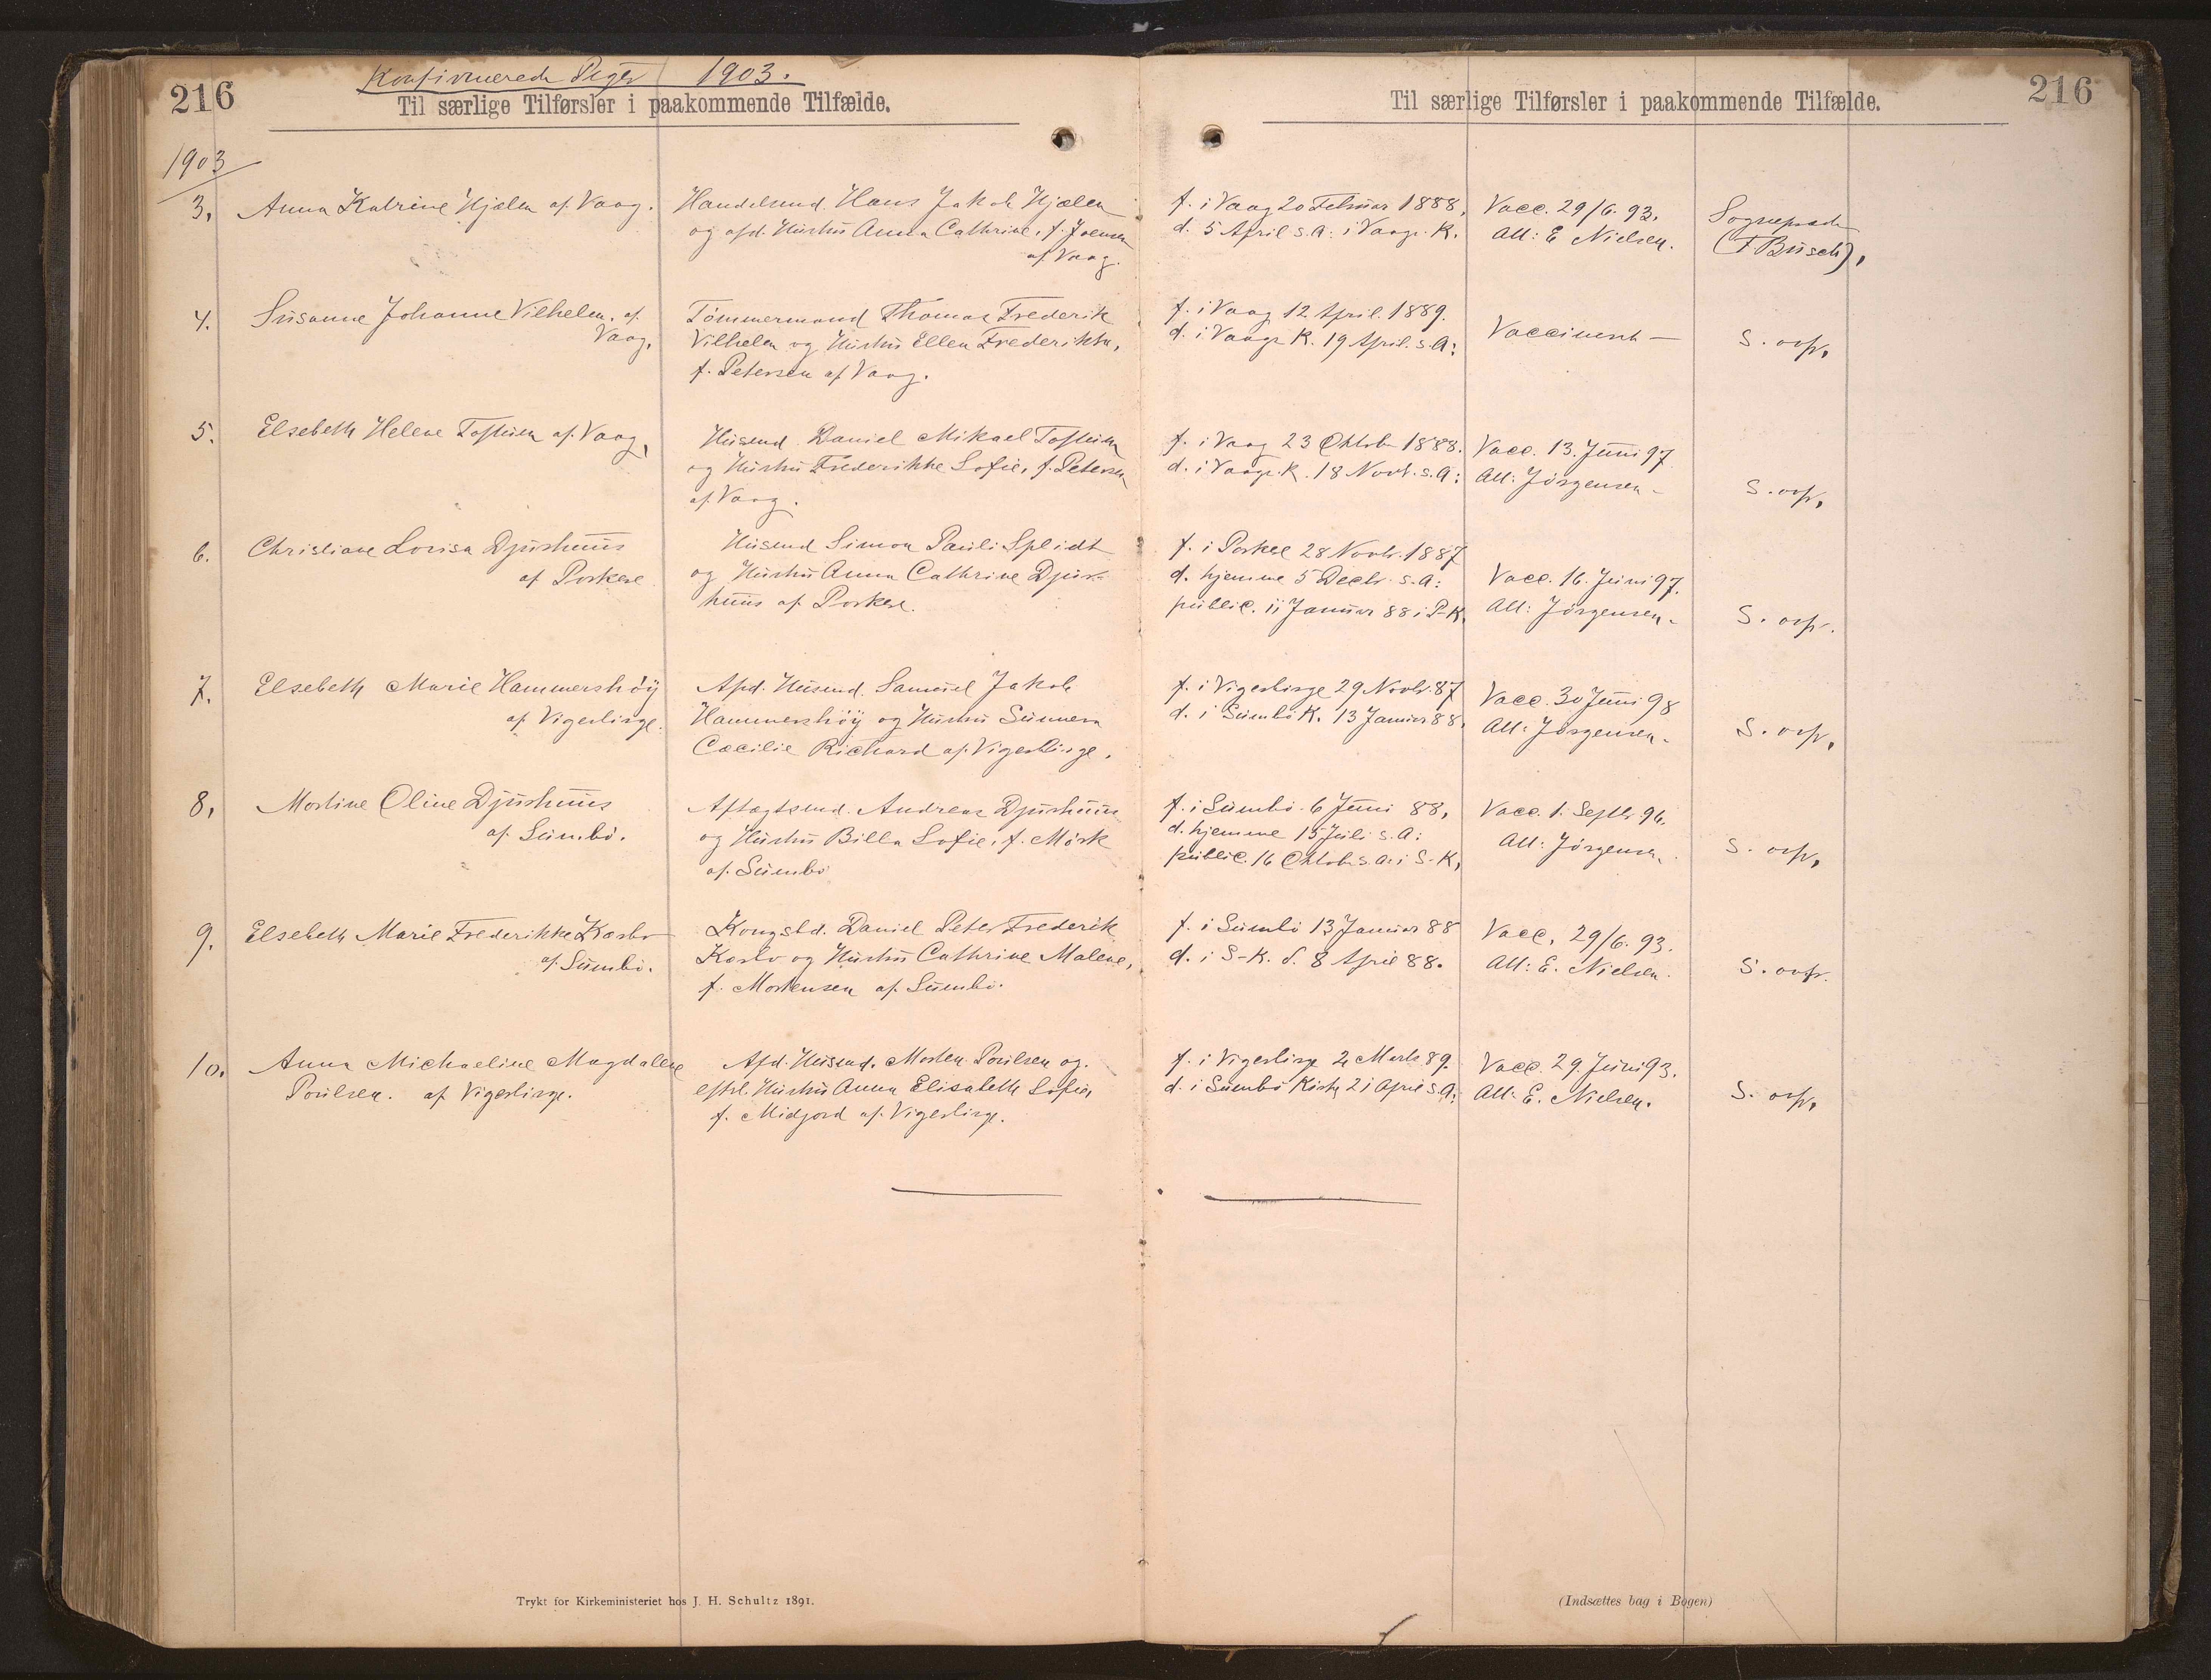 216
Konfirmerede Piger 1903.
Til særlige Tilførsler i paakommende Tilfælde.
1903
3. Anna Katrine Hjælm af Vaag.
Handelsmd. Hans Jakob Hjælm
og afd. Hustru Anna Cathrine, f. Joensen
af Vaag.
4. Susanne Johanne Vilhelm. af
Vaag.
Tömmermand Thomas Frederik
Vilhelm og Hustru Ellen Frederikka,
f. Petersen af Vaag.
5. Elsebeth Helene Toftum af Vaag,
Husmd Daniel Mikael Toftum
og Hustru Frederikke Sofie, f. Petersen
af Vaag.
6. Christiane Lovisa Djurhuus
af Porkere
Husmd Simon Pauli Splidt
og Hustru Anna Cathrine Djur-
huus af Porkere.
7. Elsebeth Marie Hammershöy
af Vigerlirge.
Afd. Husmd. Samuel Jakob
Hammershöy og Hustru Sunneva
Cæcilie Richard af Vigerlirge.
8. Mortine Oline Djurhuus
af Sumbö.
Aftægtsmd. Andreas Djurhuus
og Hustru Billa Sofie, f. Mörk
af Sumbö
9. Elsebeth Marie Frederikke Kærbo
af Sumbö.
Kongsbd. Daniel Peter Frederik
Kærbo og Hustru Cathrine Malene,
f. Mortensen af Sumbö.
10. Anna Michaeline Magdalene
Poulsen. af Vigerlirge.
Afd. Husmd. Morten Poulsen og
eftrl. Hustru Anna Elisabeth Sofie,
f. Midjord af Vigerlirge.
Trykt for Kirkeministeriet hos J. H. Schultz 1891.
Til særlige Tilførsler i paakommende Tilfælde.
216
f. i Vaag 20 Februar 1888,
d. 5 April s. A: i Vaags K.
Vacc. 29/6. 93.
Att: E Nielsen.
Sognepræst
(F Busch),
f. i Vaag 12 April. 1889.
d. i Vaags K. 19 April. s. A:
Vaccineret –
S. ovfr,
f. i Vaag 23 Oktobr 1888.
d. i Vaags K. 18 Novb. s. A:
Vacc. 13. Juni 97
Att: Jörgensen –
S. ovfr,
f. i Porkere 28 Novbr. 1887
d. hjemme 5 Decbr. s. A:
public. 11 Januar 88 i P-K.
Vacc. 16. Juni 97.
Att: Jörgensen –
S. ovfr.
f. i Vigerlirge 29 Novbr. 87
d. i Sumbö K. 13 Januar 88.
Vacc. 30 Juni 98
Att: Jörgensen –
S. ovfr,
f. i Sumbö 6 Juni 88,
d. hjemme 15 Juli s. A:
public. 16 Oktob. s. A: i S-K,
Vacc. 1. Septbr 96.
Att: Jörgensen.
S. ovfr,
f. i Sumbö 13 Januar 88
d. i S-K. d. 8 April 88.
Vacc, 29/6. 93.
Att: E. Nielsen.
S. ovfr.
f. i Vigerlirge 2 Marts 89.
d. i Sumbö Kirke 21 April s A:
Vacc. 29 Juni 93.
Att: E. Nielsen.
S. ovfr,
(Indsættes bag i Bogen)